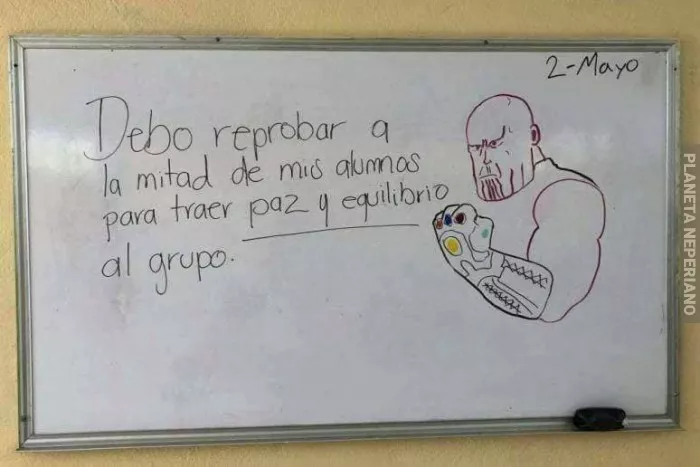 2-Mayo
Debo reprobar a
la mitad de mis alumnos
para traer paz y equilibrio
al grupo.
PLANETA NEPERIANO